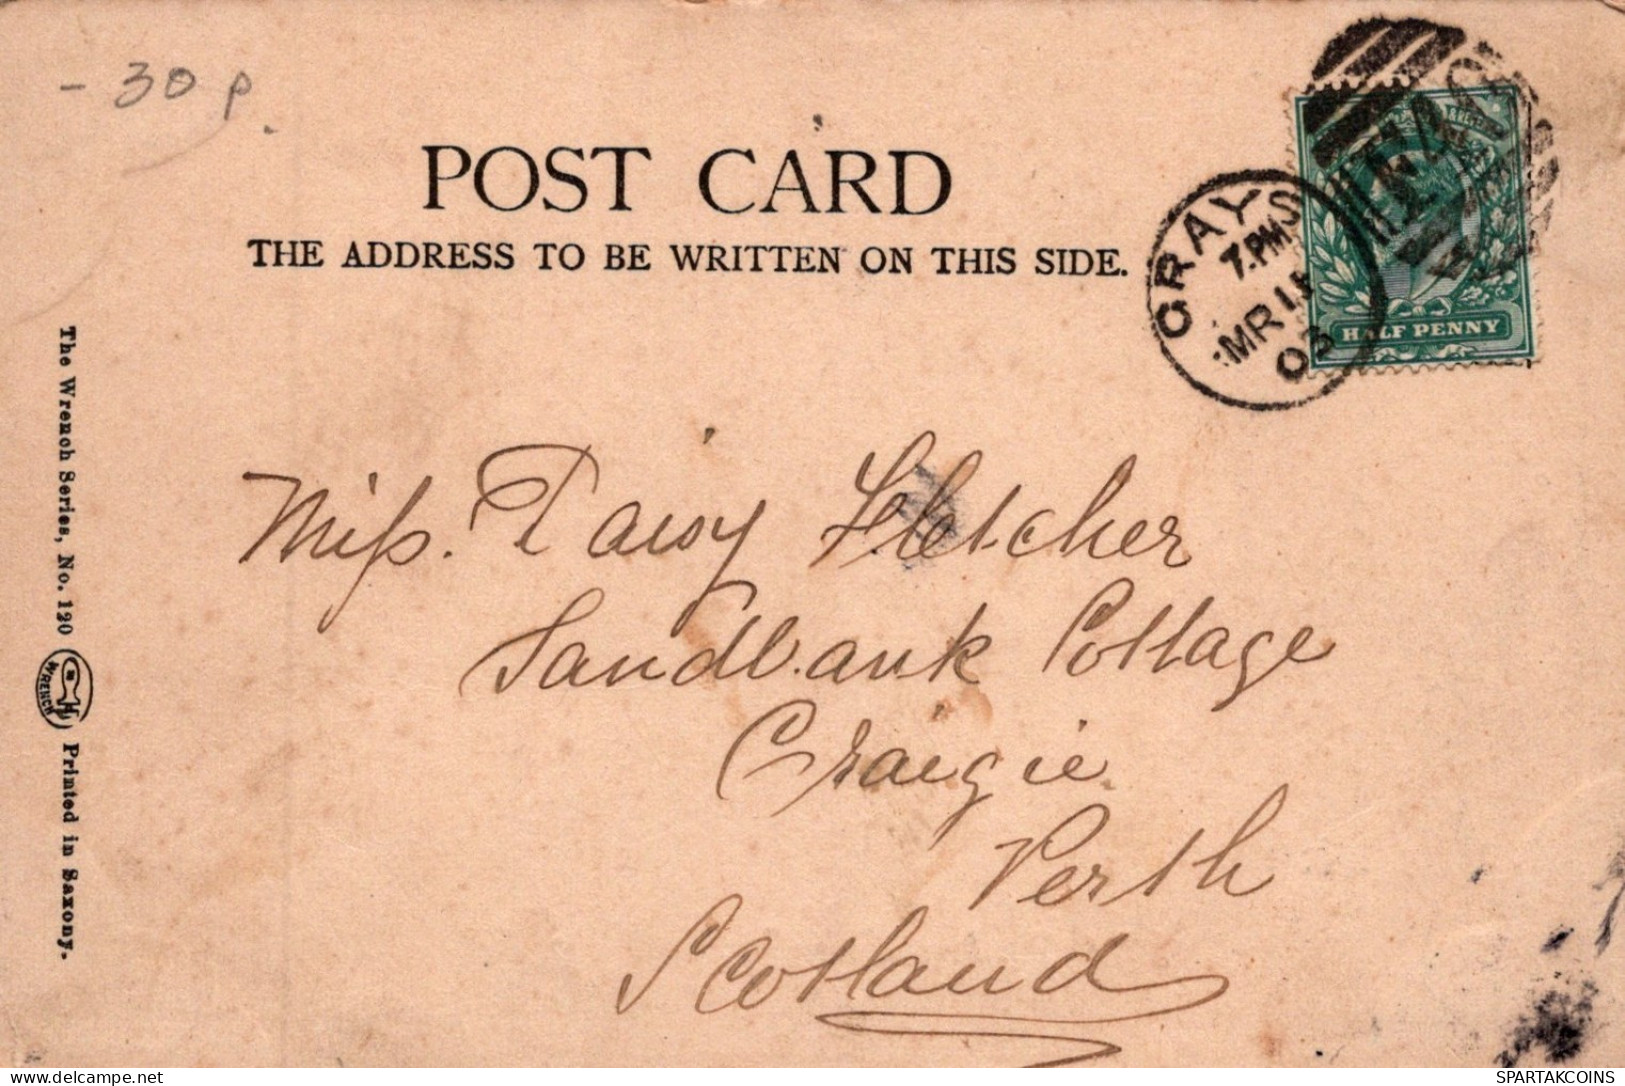 - 30 p.
POST CARD
THE ADDRESS TO BE WRITTEN ON THIS SIDE.
GRAYS
7.PM
MR 11
03
HALF PENNY
Miss. Daisy Fletcher
Sandbank Cottage
Craigie
Perth
Scotland
The Wrench Series, No. 120
WRENCH
Printed in Saxony.
SPARTAKCOINS